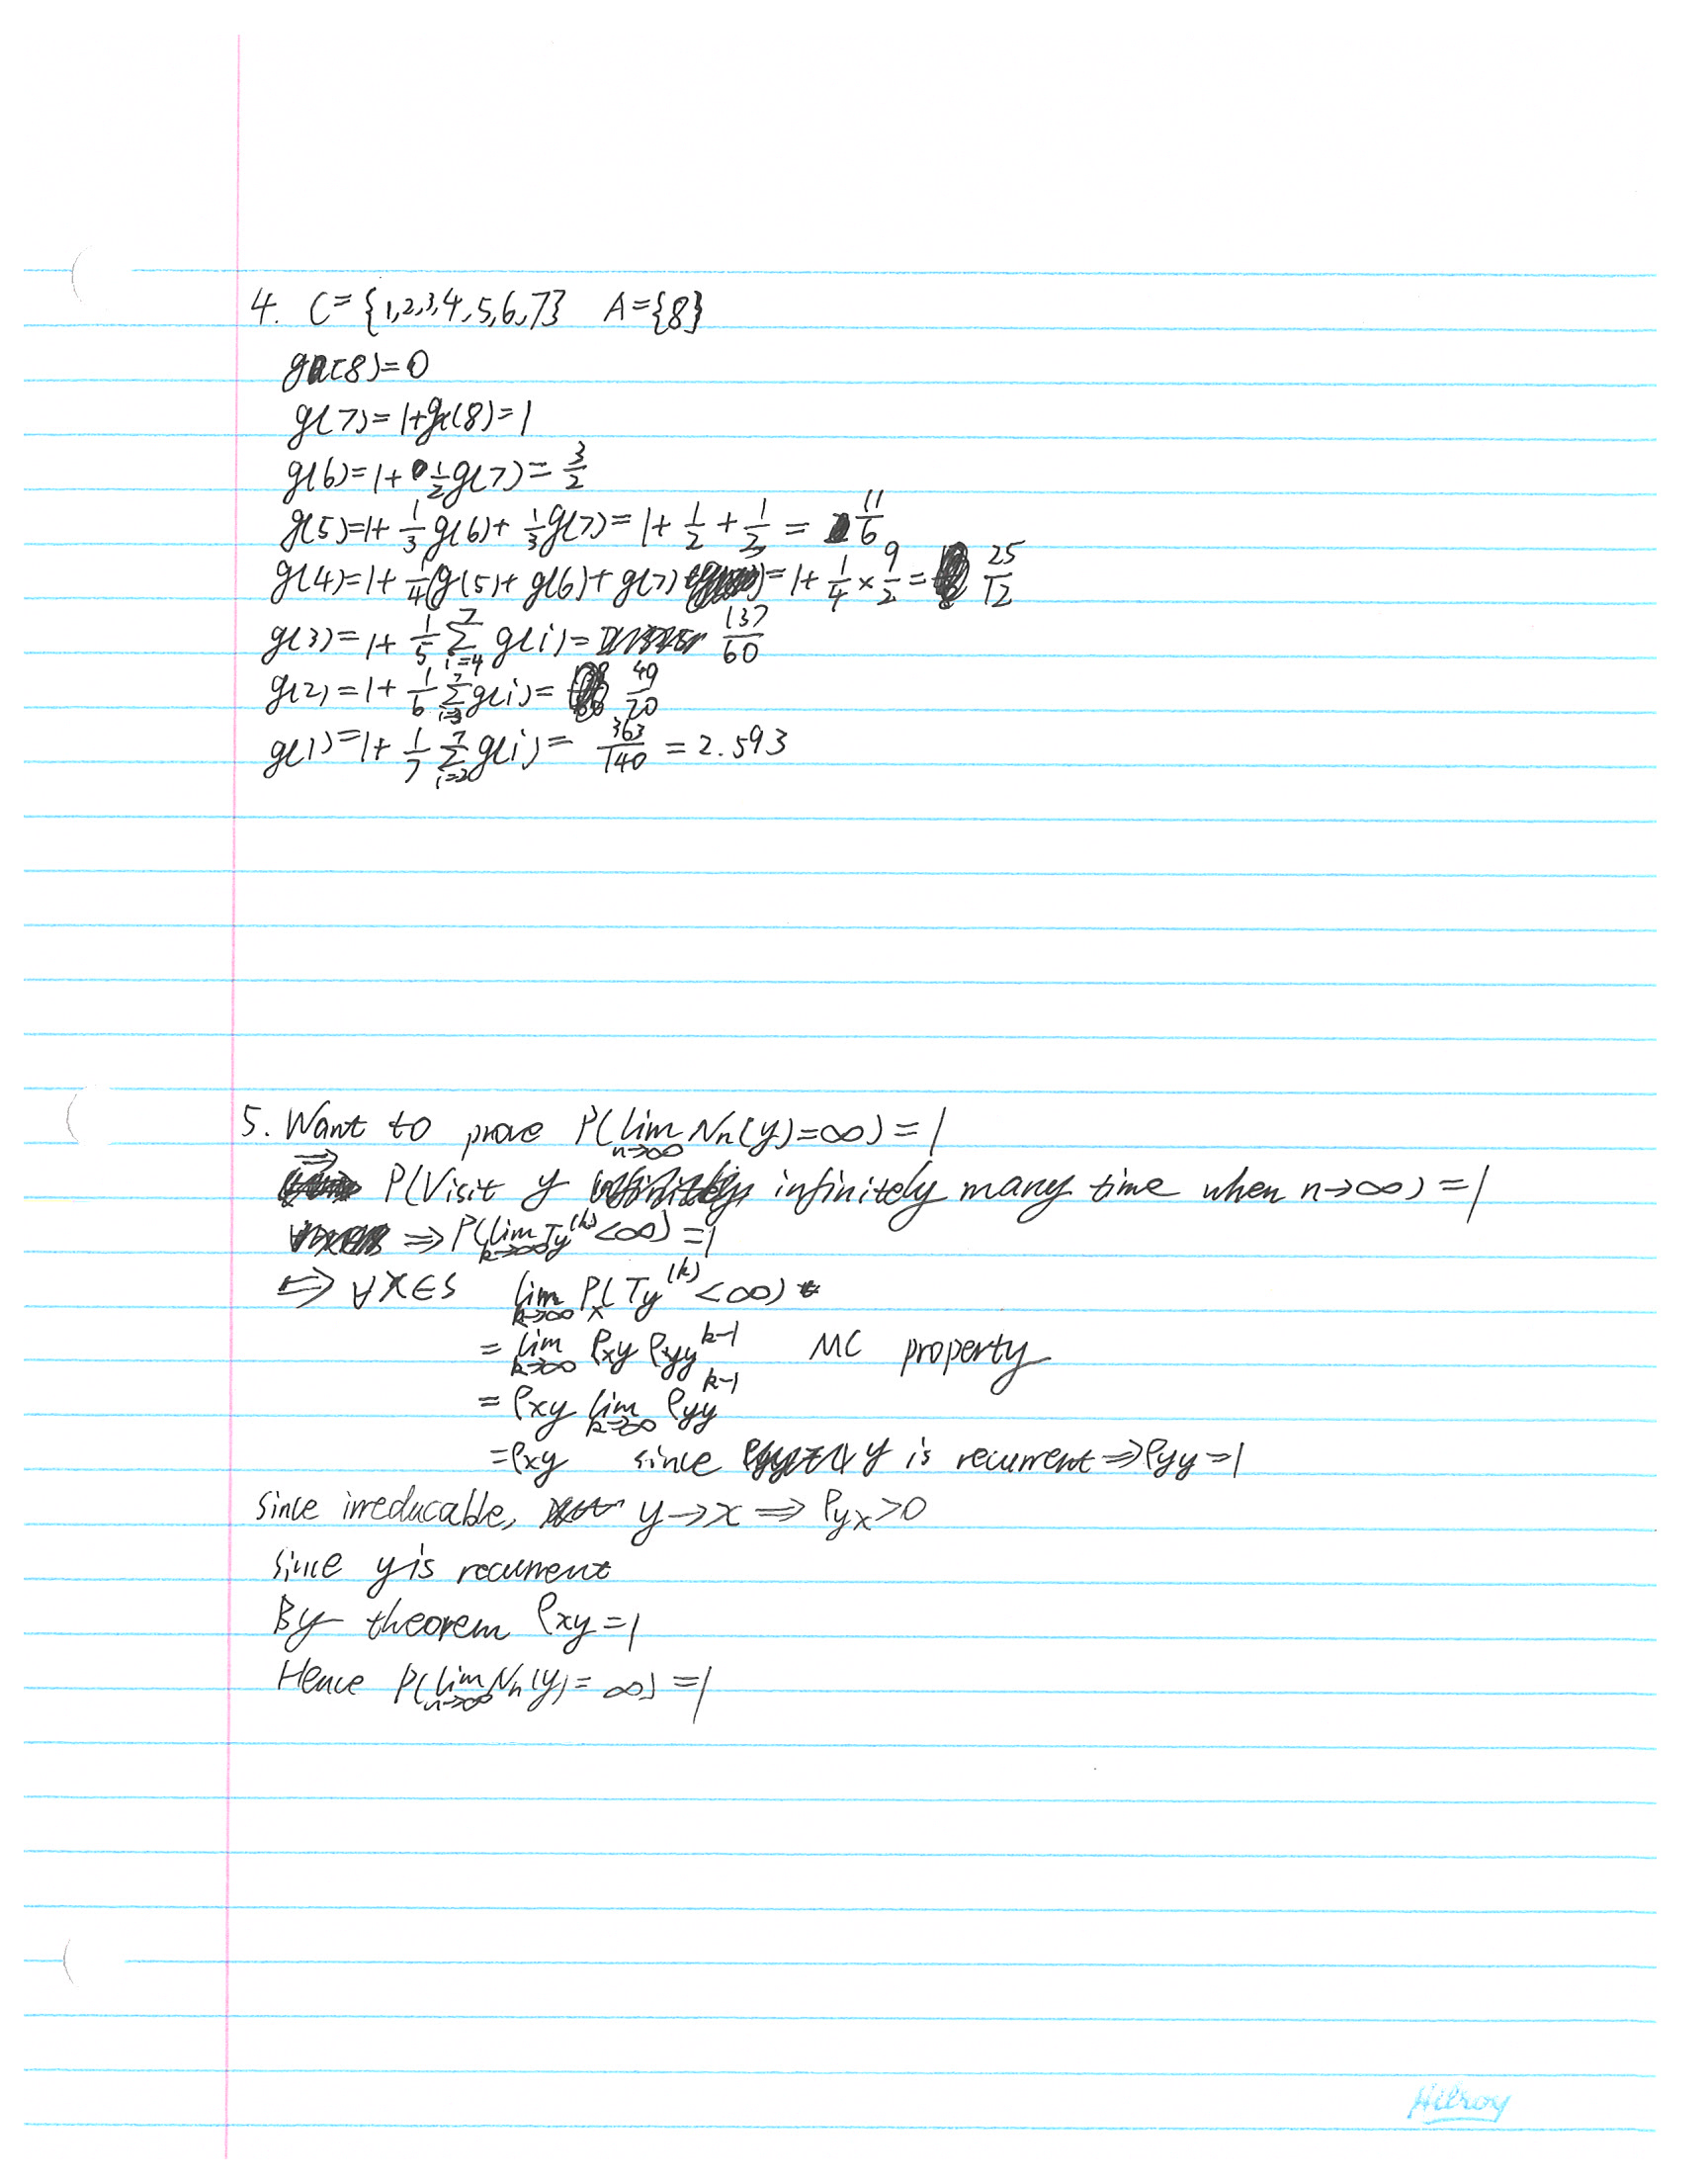 4. C={1,2,3,4,5,6,7} A={8}
g(8)=0
g(7)=1+g(8)=1
g(6)=1+ 1/2 g(7)= 3/2
g(5)=1+ 1/3 g(6)+ 1/3 g(7)= 1+ 1/2 + 1/3 = 11/6
g(4)=1+ 1/4(g(5)+g(6)+g(7))=1+ 1/4 × 9/2 = 25/12
g(3)=1+ 1/5 Σ_{i=4}^{7} g(i)= 137/60
g(2)=1+ 1/6 Σ_{i=3}^{7} g(i)= 49/20
g(1)=1+ 1/7 Σ_{i=2}^{7} g(i)= 363/140 = 2.593
5. Want to prove P(lim_{n→∞} Nn(y)=∞)=1
⇒ P(Visit y infinitely many time when n→∞)=1
⇒ P(lim_{k→∞} Ty^(k) <∞)=1
⇒ ∀x∈S lim_{k→∞} Px(Ty^(k) <∞)
= lim_{k→∞} ρxy ρyy^{k-1} MC property
= ρxy lim_{k→∞} ρyy^{k-1}
=ρxy since y is recurrent ⇒ ρyy=1
Since irreducable, y→x ⇒ ρyx>0
Since y is recurrent
By theorem ρxy=1
Hence P(lim_{n→∞} Nn(y)=∞)=1
Hilroy